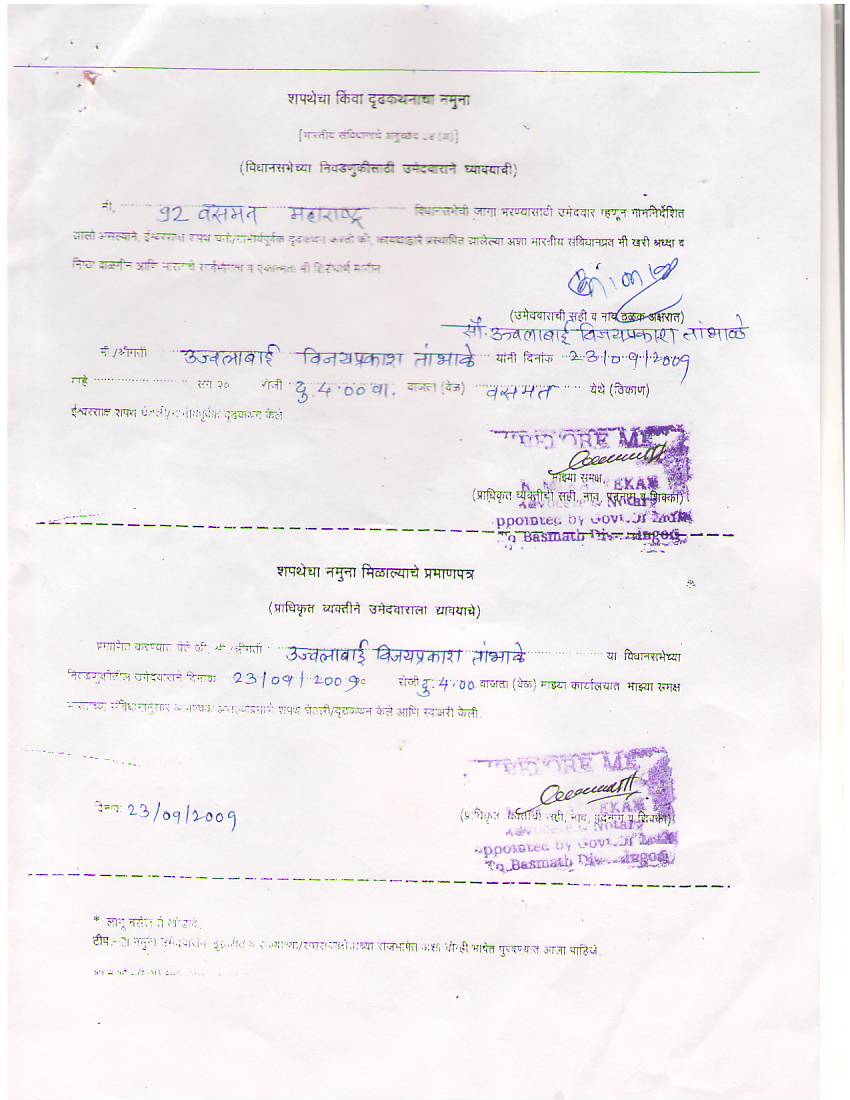 शपथेचा किंवा दृढकथनाचा नमुना
[भारतीय संविधानाचे अनुच्छेद
(विधानसभेच्या निवडणुकीसाठी उमेदवाराने घ्यावयाची)
मी, ९२ वसमत महाराष्ट्र विधानसभेची जागा भरण्यासाठी उमेदवार म्हणून नामनिर्देशित
झालो असल्याने, ईश्वरसाक्ष शपथ घेतो/गांभीर्यपूर्वक दृढकथन करतो की, कायद्याद्वारे प्रस्थापित झालेल्या अशा भारतीय संविधानाप्रत मी खरी श्रध्दा व
निष्ठा बाळगीन आणि भारताचे सार्वभौमत्व व एकात्मता मी
(उमेदवाराची सही व नाव ठळक अक्षरात)
सौ. उज्वलाबाई विजयप्रकाश तांभाळे
श्री/श्रीमती उज्वलाबाई विजयप्रकाश तांभाळे यांनी दिनांक 23/09/2009
माहे सन २० रोजी दु. 4.00 वा. वाजता (वेळ) वसमत येथे (ठिकाण)
ईश्वरसाक्ष शपथ घेतली/गांभीर्यपूर्वक दृढकथन केले
BEFORE ME
माझ्या समक्ष,
(प्राधिकृत व्यक्तीची सही, नाव, पदनाम व शिक्का)
Advocate & Notary
ppointed by Govt. of India
To Basmath Dis
शपथेचा नमुना मिळाल्याचे प्रमाणपत्र
(प्राधिकृत व्यक्तीने उमेदवाराला द्यावयाचे)
प्रमाणित करण्यात येते की, श्री /श्रीमती उज्वलाबाई विजयप्रकाश तांभाळे या विधानसभेच्या
निवडणुकीतील उमेदवाराने दिनांक 23/09/2009 रोजी दु. 4.00 वाजता (वेळ) माझ्या कार्यालयात माझ्या समक्ष
संविधानानुसार आवश्यक असल्याप्रमाणे शपथ घेतली/दृढकथन केले आणि स्वाक्षरी केली.
BEFORE ME
दिनांक 23/09/2009
(प्राधिकृत व्यक्तीची सही, नाव, पदनाम व शिक्का)
Advocate & Notary
ppointed by Govt. of India
To Basmath Dis
* लागू नसेल ते खोडावे.
टीप नमुना राजभाषेत अशा दोन्ही भाषेत पुरवण्यात आला पाहिजे.